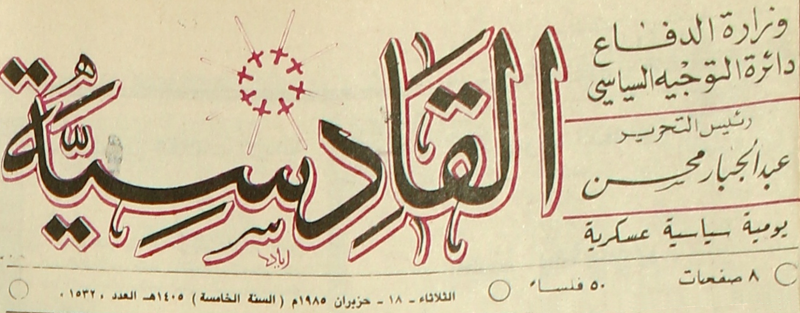 وزارة الدفاع
دائرة التوجيه السياسي
رئيس التحرير
عبد الجبار محسن
يومية سياسية عسكرية
القادسية
٨ صفحات
٥٠ فلساً
الثلاثاء - ١٨ - حزيران ١٩٨٥م ( السنة الخامسة ) ١٤٠٥هـ العدد ، ١٥٣٢ ،